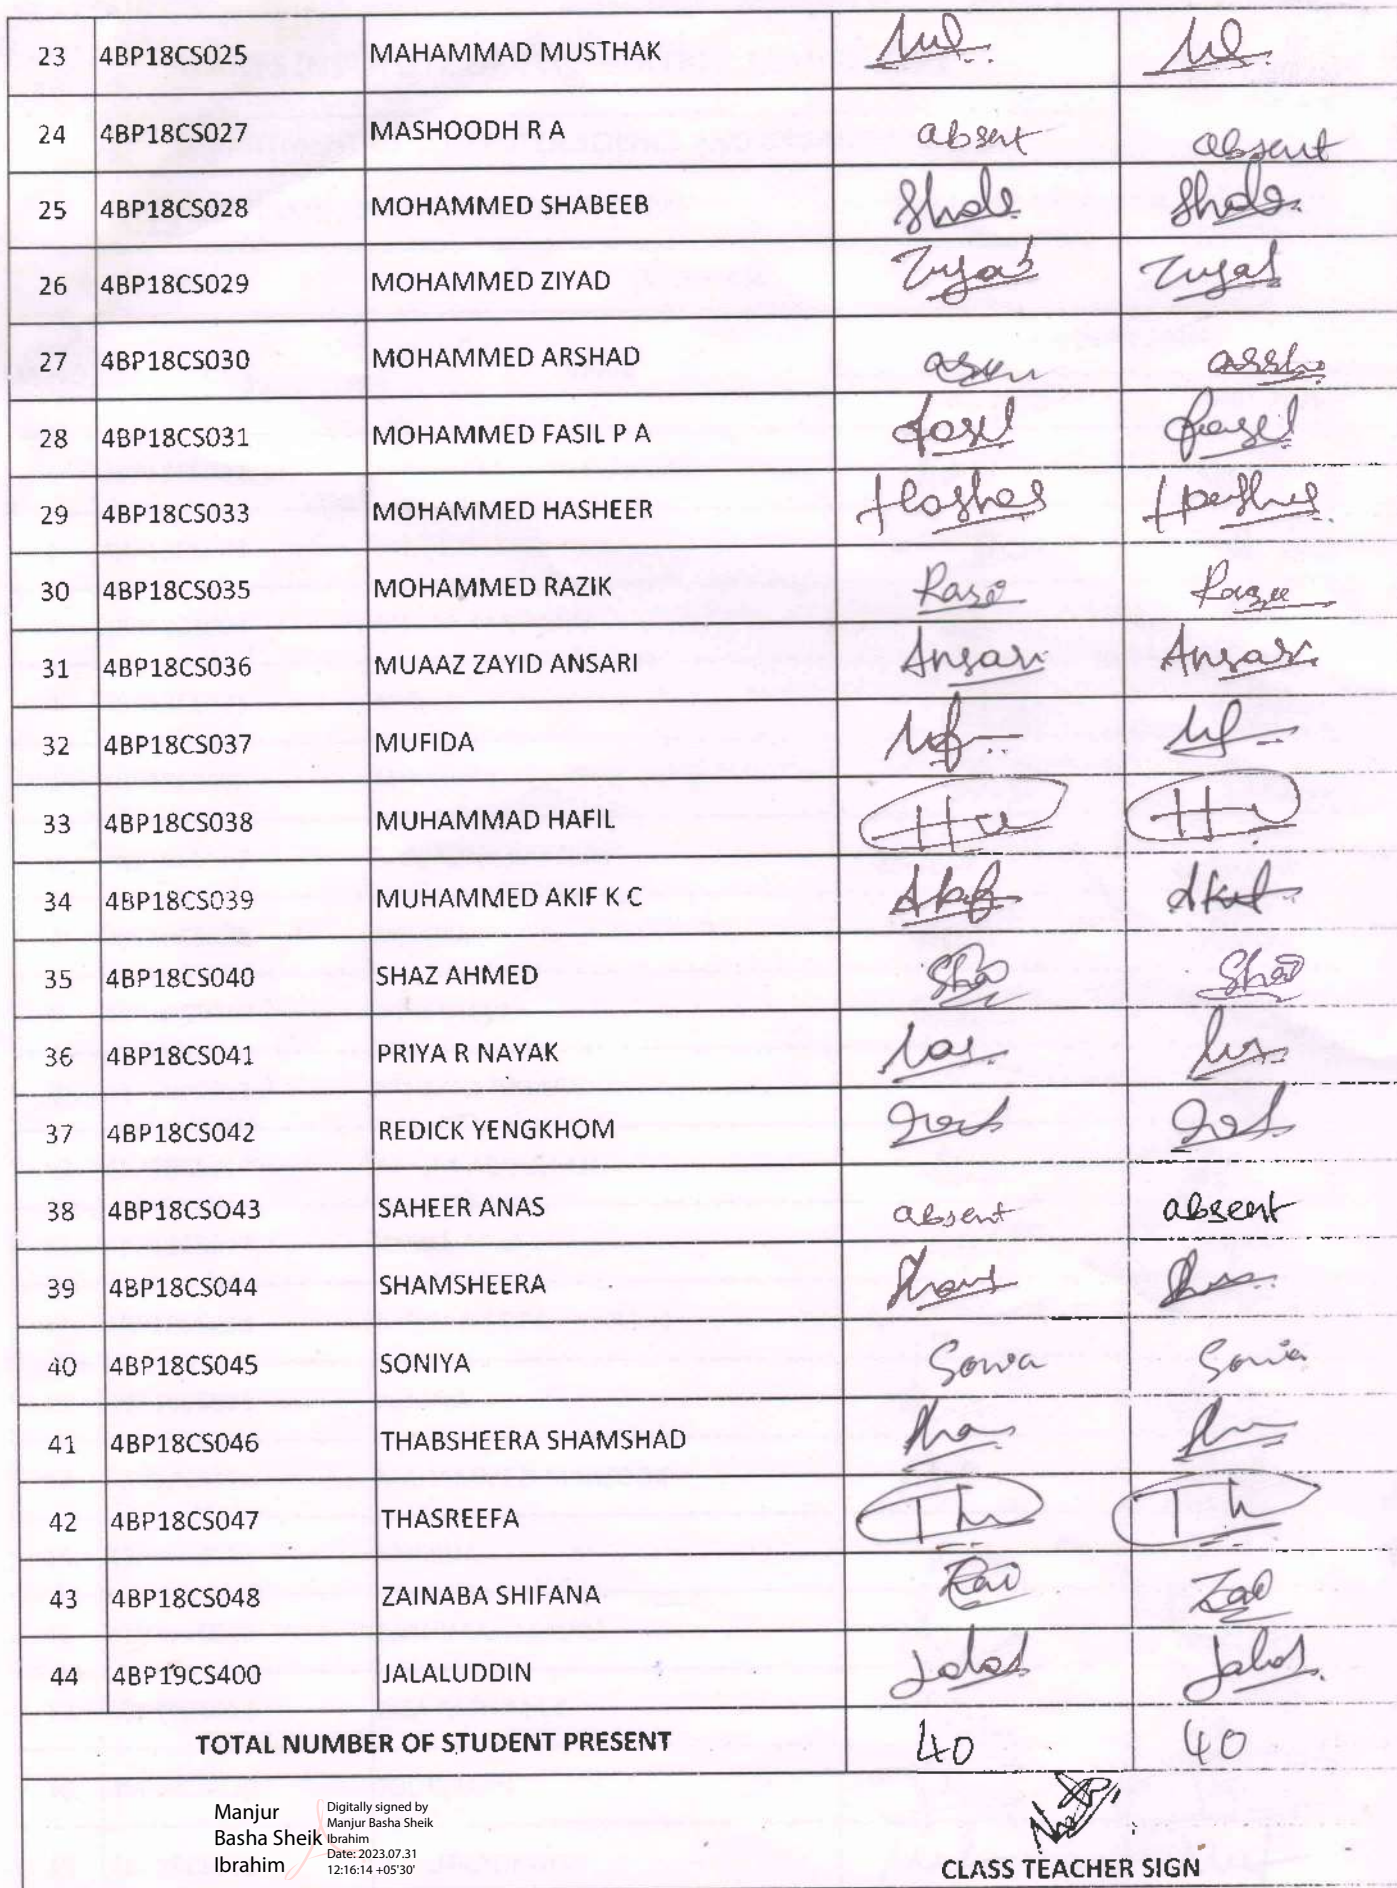 23 4BP18CS025 MAHAMMAD MUSTHAK
24 4BP18CS027 MASHOODH R A absent absent
25 4BP18CS028 MOHAMMED SHABEEB
26 4BP18CS029 MOHAMMED ZIYAD
27 4BP18CS030 MOHAMMED ARSHAD
28 4BP18CS031 MOHAMMED FASIL P A
29 4BP18CS033 MOHAMMED HASHEER
30 4BP18CS035 MOHAMMED RAZIK
31 4BP18CS036 MUAAZ ZAYID ANSARI Ansari Ansari
32 4BP18CS037 MUFIDA
33 4BP18CS038 MUHAMMAD HAFIL
34 4BP18CS039 MUHAMMED AKIF K C
35 4BP18CS040 SHAZ AHMED
36 4BP18CS041 PRIYA R NAYAK
37 4BP18CS042 REDICK YENGKHOM
38 4BP18CSO43 SAHEER ANAS absent absent
39 4BP18CS044 SHAMSHEERA
40 4BP18CS045 SONIYA Sonia Sonia
41 4BP18CS046 THABSHEERA SHAMSHAD
42 4BP18CS047 THASREEFA
43 4BP18CS048 ZAINABA SHIFANA
44 4BP19CS400 JALALUDDIN
TOTAL NUMBER OF STUDENT PRESENT 40 40
Manjur
Basha Sheik
Ibrahim
Digitally signed by
Manjur Basha Sheik
Ibrahim
Date: 2023.07.31
12:16:14 +05'30'
CLASS TEACHER SIGN